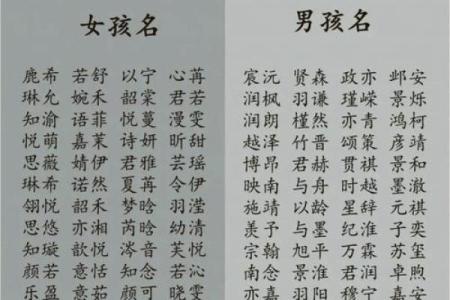 女孩名
鹿希 若舒 以宁 心苒
琳允 婉禾 韶棠 君若
知渝 语菲 悦蔓 漫雯
悦萌 嘉茉 诗妍 昕甜
思薇 婧伊 君雅 芸瑶
琳希 诺然 夏苒 令伊
翎悦 韶禾 梦晗 羽滢
思悠 亦湘 芮晗 幼清
知璇 歆悦 涔音 芙悦
颜若 意恬 知念 若沁
乐盈 意茹 颜可 晓雯
男孩名
宸沅 贤森 政亦 邺安
润枫 羽谦 瑾嵘 景烁
润朗 槿然 亦青 鸿柯
越泽 竹晋 颂策 彦靖
博昂 君赫 贯祺 景和
映南 与舟 时越 墨澈
施靖 以龄 星辞 元祺
羡予 与墨 君淮 子奕
宗翰 旭平 纪霖 苏玺
南念 景淮 万润 卓煦
嘉意 景阳 君宁 嘉安